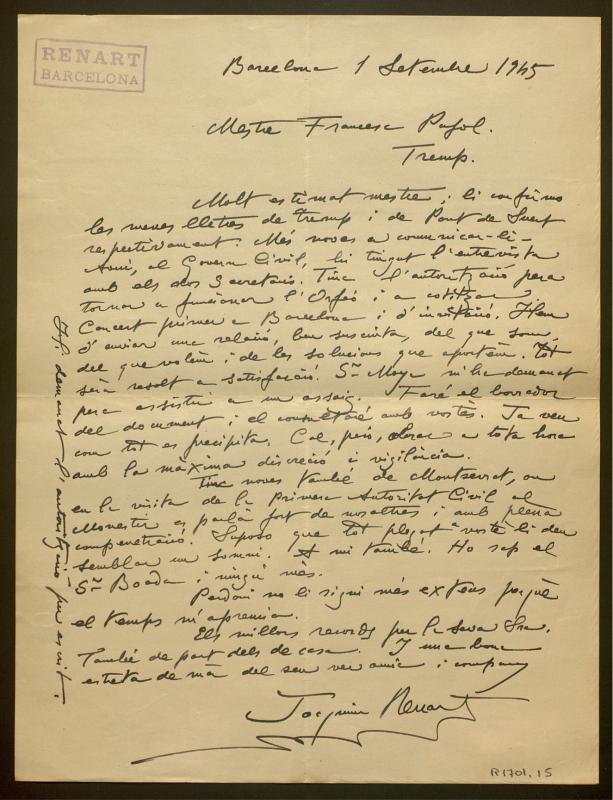 RENART
BARCELONA
Barcelona 1 Setembre 1945
Mestre Francesc Pujol.
Tremp.
Molt estimat mestre; li confirmo
les meves lletres de Tremp i de Pont de Suert
respectivament. Més noves a comunicar-li-
Avui, al Govern Civil, hi tingut l'entrevista
amb els dos Secretaris. Tinc l'autorització pera
tornar a funcionar l'Orfeó i a cotitzar
Concert primer a Barcelona i d'invitació. Hem
d'enviar una relació, ben suscinta, del que som,
del que volem i de les solucions que aportem. Tot
serà resolt a satisfacció. Sr Moya m'ha demanat
pera assistir a un assaig. Faré el borrador
del document i el consultaré amb vostès. Ja veu
com tot es precipita. Cal, però, obrar a tota hora
amb la màxima discreció i vigilància.
Tinc noves també de Montserrat, on
en la visita de la Primera Autoritat Civil al
Monestir es parlà fort de nosaltres i amb plena
compenetració. Suposo que tot plegat a vostè li deu
semblar un somni. A mi també. Ho sap el
Sr Boada i ningú més.
Perdoni no li sigui més extens perquè
el temps m'apremia.
Els millors records per la seva Sra.
També de part dels de casa. I una bona
estreta de mà del seu ver amic i company
Joaquim Renart
demanat l'autorització per escrit.
R1701.15